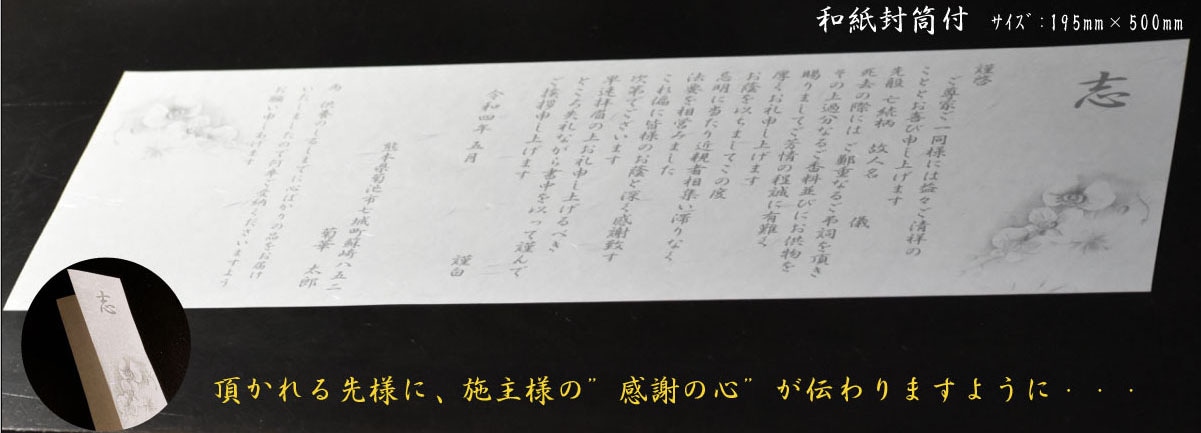 和紙封筒付 ｻｲｽﾞ:195mm×500mm
志
謹啓
ご尊家ご一同様には益々ご清祥の
こととお喜び申し上げます
先般 亡続柄 故人名 儀
死去の際には ご鄭重なるご弔詞を頂き
その上過分なるご香料並びにお供物を
賜りましてご芳情の程誠に有難く
厚くお礼申し上げます
お陰を以ちましてこの度
忌明に当たり近親者相集い滞りなく
法要を相営みました
これ偏に皆様のお陰と深く感謝致す
次第でございます
早速拝眉の上お礼申し上げるべき
ところ失礼ながら書中を以って謹んで
ご挨拶申し上げます
謹白
令和四年 五月
熊本県菊池市七城町蘇崎八五二
菊華 太郎
尚 供養のしるしまでに心ばかりの品をお届け
いたしましたので何卒ご受納くださいますよう
お願い申し上げます
志
頂かれる先様に、施主様の”感謝の心”が伝わりますように・・・